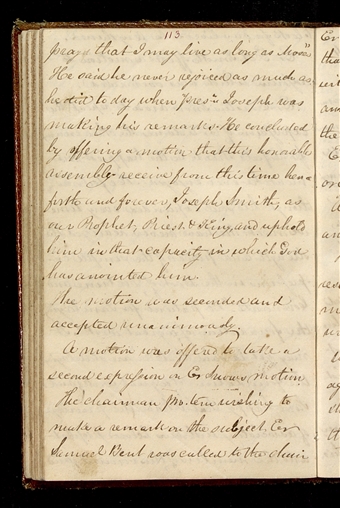 113
prays that I may live as long as Moses
He said he never rejoiced as much as
he did to day when Prest. Joseph was
making his remarks. He concluded
by offering a motion that this honorable
assembly receive from this time hence
forth and forever, Joseph Smith, as
our Prophet, Priest & King, and uphold
him in that capacity in which God
has anointed him.
The motion was seconded and
accepted unanimously.
A motion was offered to take a
second expression on Er Snows motion
The chairman pro. tem wishing to
make a remark on the subject. Er
Samuel Bent was called to the chair